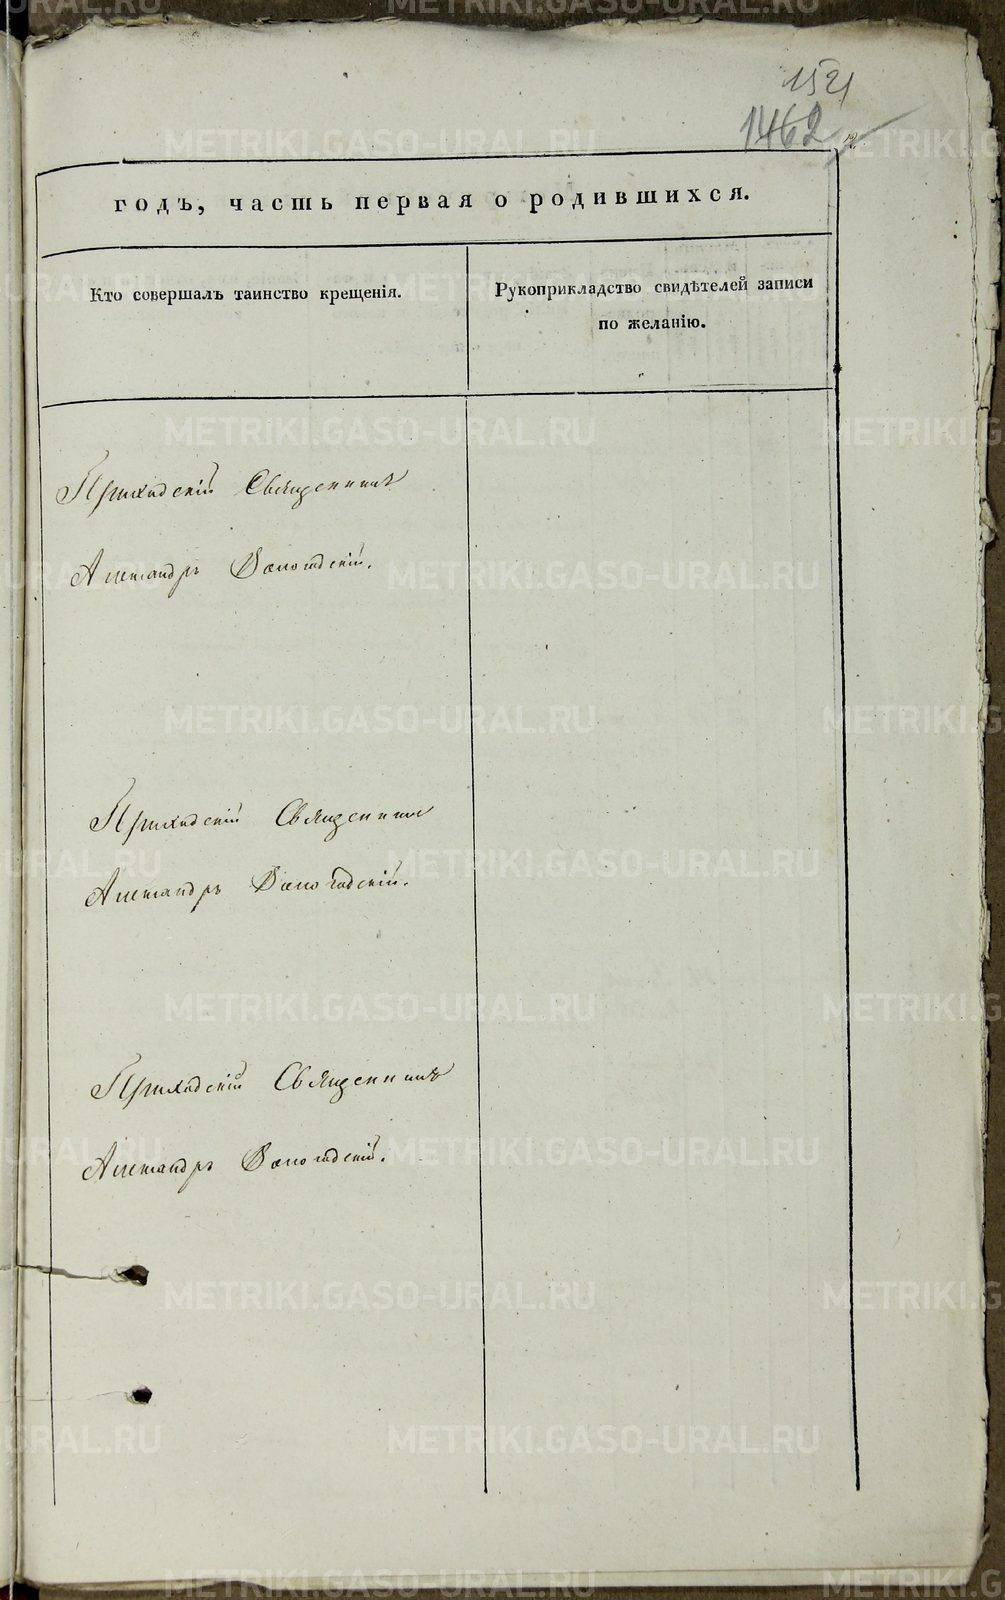 1521
1462
годъ, часть первая о родившихся.
Кто совершалъ таинство крещенія.
Рукоприкладство свидѣтелей записи
по желанію.
Приходскій Священникъ
Александръ Вологодскій.
Приходскій Священникъ
Александръ Вологодскій.
Приходскій Священникъ
Александръ Вологодскій.
METRIKI.GASO-URAL.RU